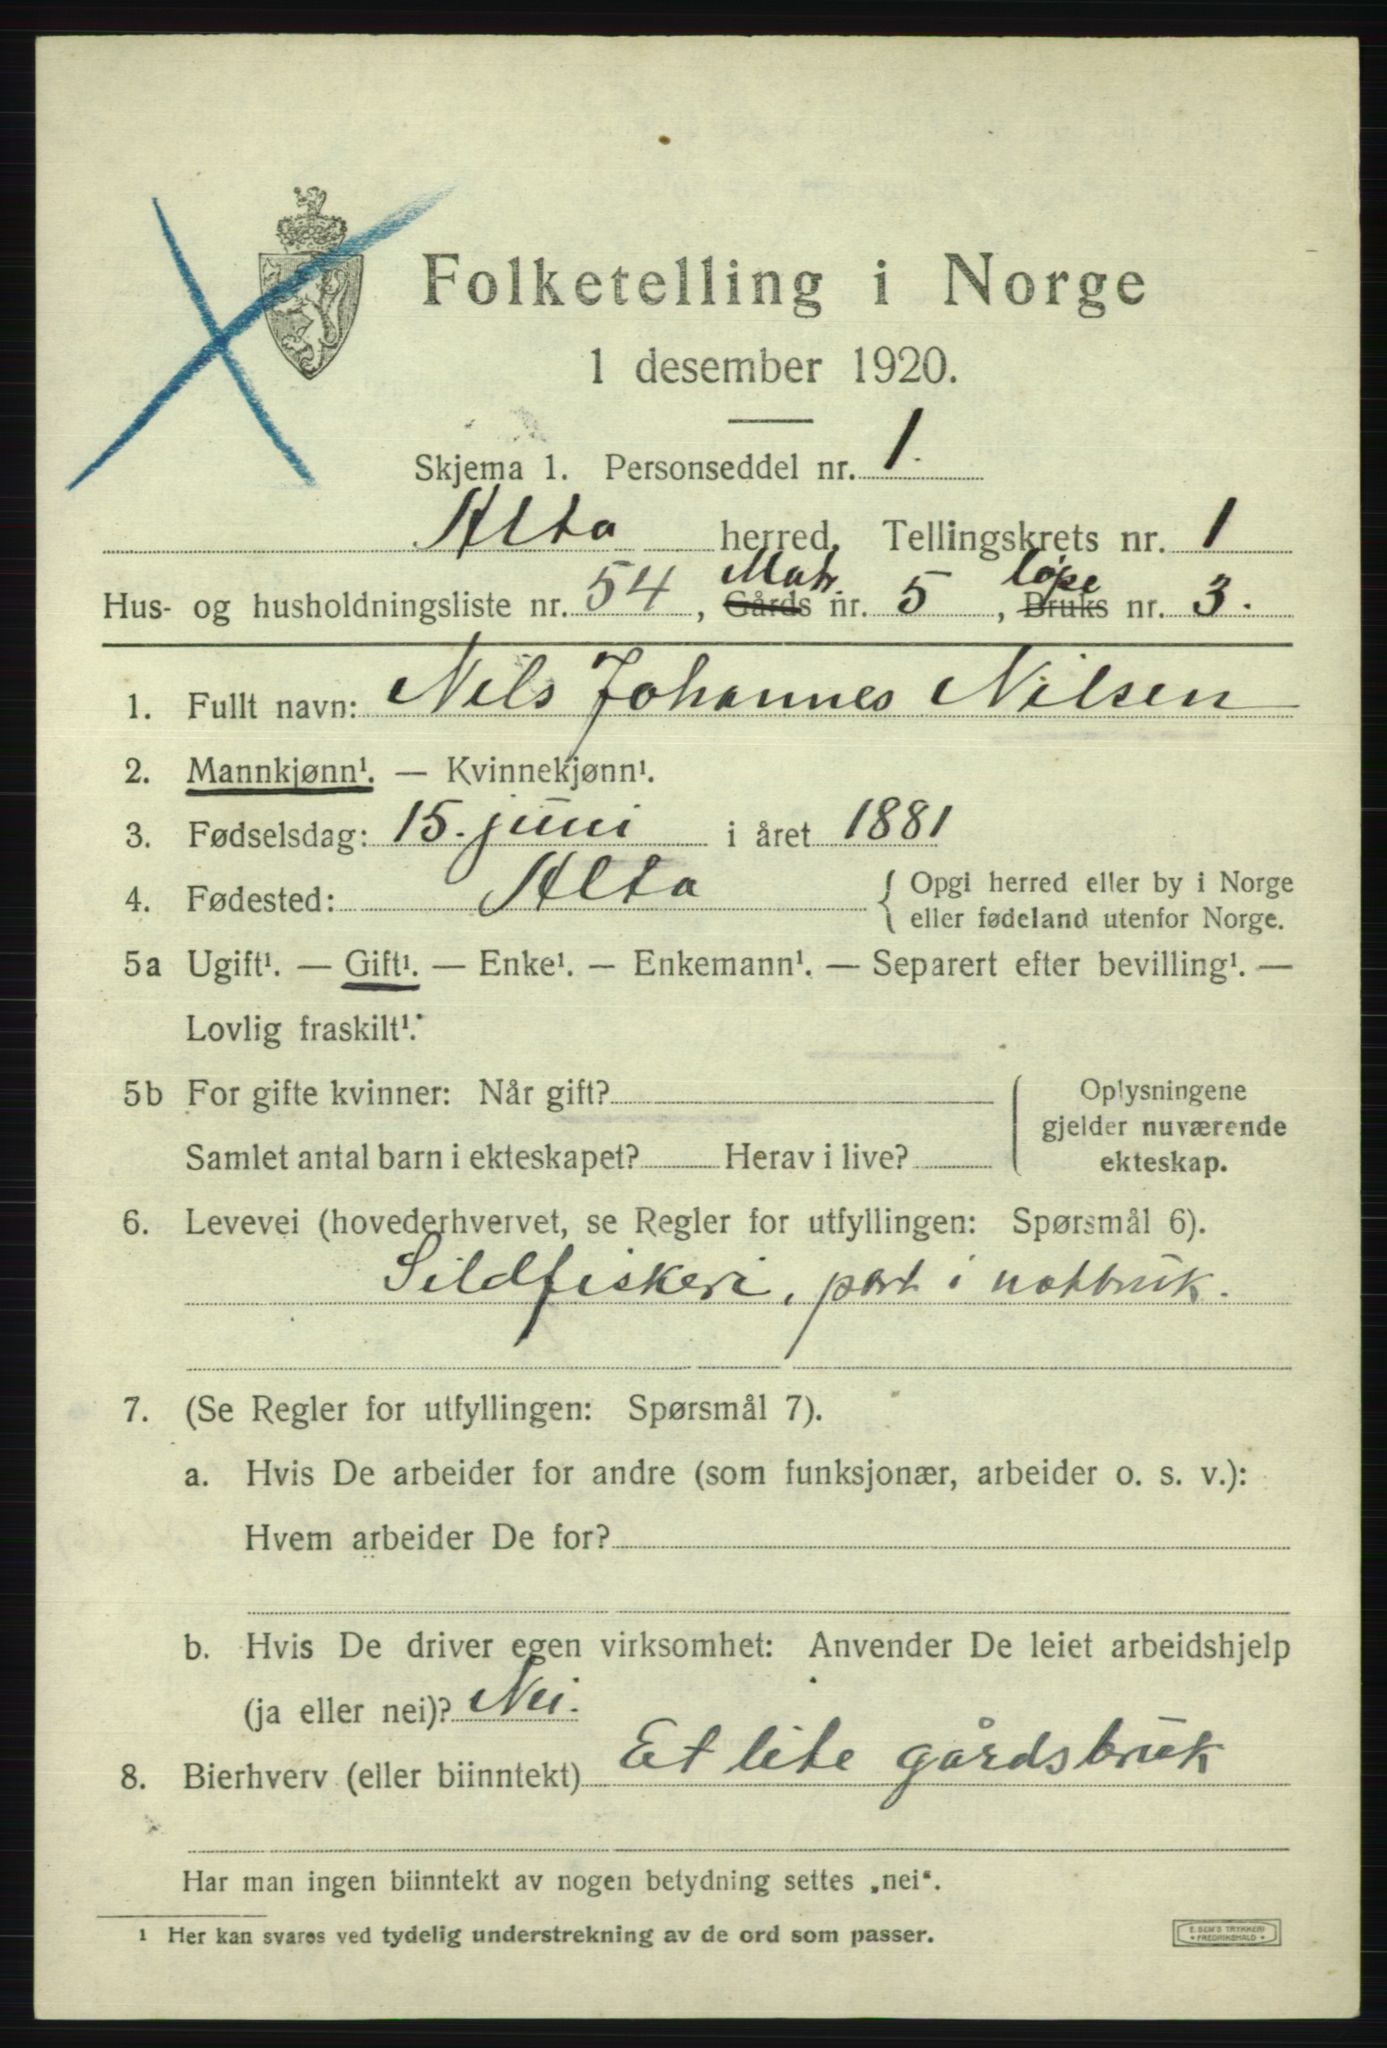 Folketelling i Norge
1 desember 1920.
Skjema 1. Personseddel nr. 1.
Alta herred, Tellingskrets nr. 1
Matr. løpe
Hus- og husholdningsliste nr. 54, Gårds nr. 5, Bruks nr. 3.
1. Fullt navn: Nils Johannes Nilsen
2. Mannkjønn¹. — Kvinnekjønn¹.
3. Fødselsdag: 15. juni i året 1881
4. Fødested: Alta { Opgi herred eller by i Norge
eller fødeland utenfor Norge.
5a Ugift¹. — Gift¹. — Enke¹. — Enkemann¹. — Separert efter bevilling¹. —
Lovlig fraskilt¹.
5b For gifte kvinner: Når gift? Oplysningene
gjelder nuværende
Samlet antal barn i ekteskapet? Herav i live? ekteskap.
6. Levevei (hovederhvervet, se Regler for utfyllingen: Spørsmål 6).
Sildfiskeri, part i notbruk.
7. (Se Regler for utfyllingen: Spørsmål 7).
a. Hvis De arbeider for andre (som funksjonær, arbeider o. s. v.):
Hvem arbeider De for?
b. Hvis De driver egen virksomhet: Anvender De leiet arbeidshjelp
(ja eller nei)? Nei.
8. Bierhverv (eller biinntekt) Et lite gårdsbruk
Har man ingen biinntekt av nogen betydning settes „nei“.
¹ Her kan svares ved tydelig understrekning av de ord som passer.
E. SEM'S TRYKKERI
* FREDRIKSHALD *